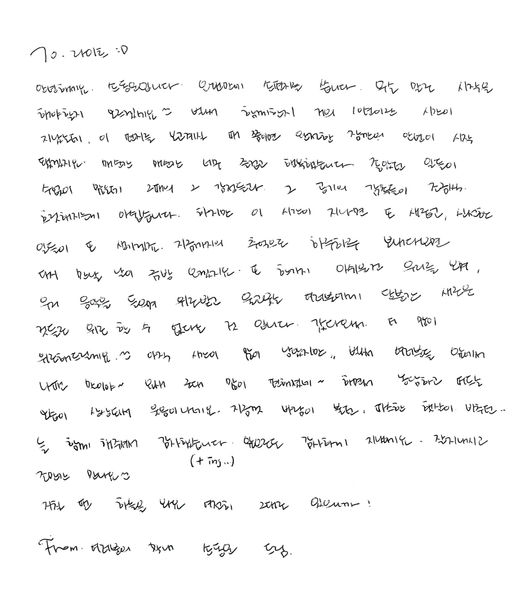 To. 라이트 :D
안녕하세요. 손동운입니다. 오랜만에 손편지를 씁니다. 무슨 말로 시작을
해야할지 모르겠네요 ^^ 벌써 함께한지 거의 1년이라는 시간이
지났는데, 이 편지를 보고계시 때 쯤이면 완전한 장마의 안녕이 시작
됐겠지요. 매번 매번 너무 즐겁고 행복했습니다. 좋았던 일들이
수없이 많은데 그때의 그 감정들과 그 공기의 감촉들이 조금씩
흐릿해지는게 아쉽습니다. 하지만 이 시간이 지나면 또 새롭고, 신나는
일들이 또 생기겠죠. 지금까지의 추억으로 하루하루 보내다보면
다시 만날 날이 금방 오겠지요. 또 한가지 아쉬운건 우리를 보며,
우리 음악을 들으며 위로받고 울고웃는 여러분에게 당분간 새로운
것들로 위로 할 수 없다는 것 입니다. 갔다와서 더 많이
위로해드릴게요. ^^ 아직 시간이 많이 남았지만.. 벌써 여러분들 앞에서
나때는 말이야~ 요새 군대 많이 편해졌네~ 하면서 농담하고 떠드는
모습이 상상되서 웃음이나네요. 지금껏 바람이 불던, 따스한 햇살이 비추던..
늘 함께 해주셔서 감사했습니다. 앞으로도 감사하며 지낼게요. 잘지내시고
(+ing..)
조만간 만나요 ^^
가끔 밤 하늘을 봐요 여전히 그대로 있으니까!
From. 여러분의 막내 손동운 드림.